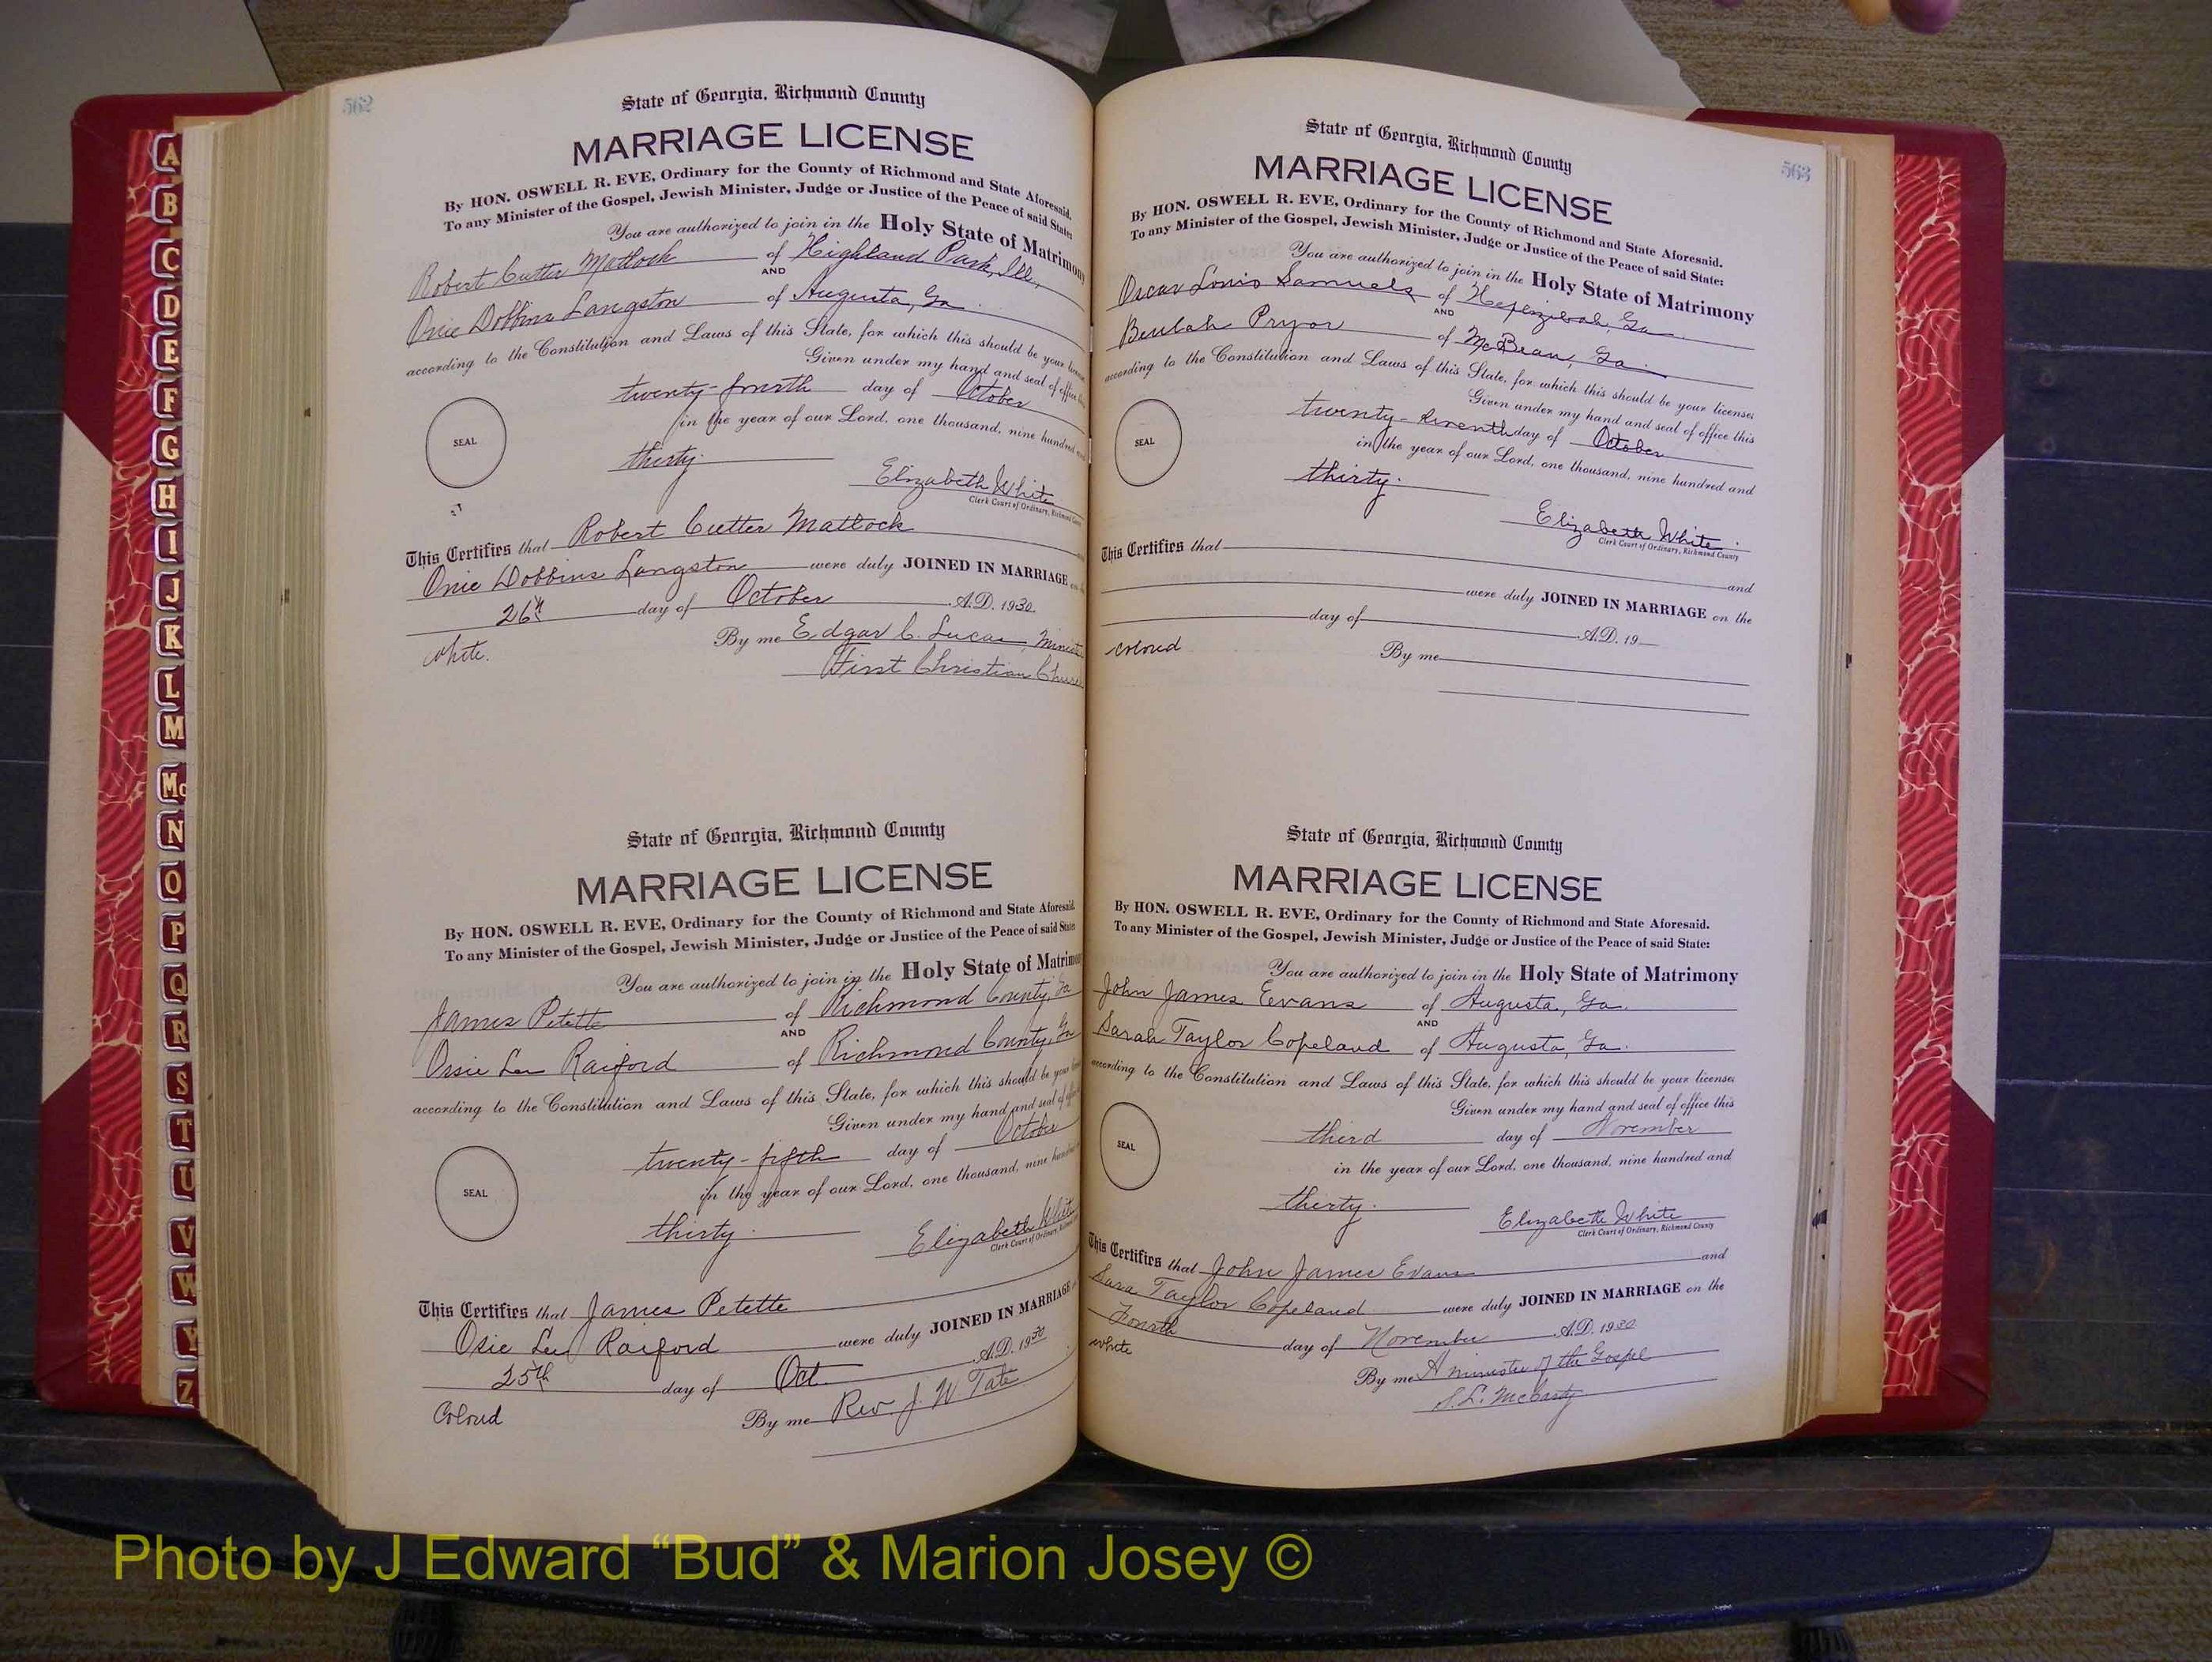 562
State of Georgia, Richmond County
MARRIAGE LICENSE
By HON. OSWELL R. EVE, Ordinary for the County of Richmond and State Aforesaid.
To any Minister of the Gospel, Jewish Minister, Judge or Justice of the Peace of said State:
You are authorized to join in the Holy State of Matrimony
Robert Cutter Matlock of Highland Park, Ill,
AND
Onie Dobbins Langston of Augusta, Ga.
according to the Constitution and Laws of this State, for which this should be your license
Given under my hand and seal of office
twenty-fourth day of October
in the year of our Lord, one thousand, nine hundred and
SEAL
thirty.
Elizabeth White
Clerk Court of Ordinary, Richmond County
This Certifies that Robert Cutter Matlock
Onie Dobbins Langston were duly JOINED IN MARRIAGE
26th day of October A.D. 1930.
white.
By me Edgar C. Lucas, Minist
First Christian Church
State of Georgia, Richmond County
MARRIAGE LICENSE
By HON. OSWELL R. EVE, Ordinary for the County of Richmond and State Aforesaid.
To any Minister of the Gospel, Jewish Minister, Judge or Justice of the Peace of said State:
You are authorized to join in the Holy State of Matrimony
James Petette of Richmond County, Ga
AND
Ossie Lee Raiford of Richmond County, Ga
according to the Constitution and Laws of this State, for which this should be your
Given under my hand and seal of office
twenty-fifth day of October
in the year of our Lord, one thousand, nine hundred
SEAL
thirty.
Elizabeth White
Clerk Court of Ordinary, Richmond
This Certifies that James Petette
Osie Lee Raiford were duly JOINED IN MARRIAGE
25th day of Oct. A.D. 1930
Colored
By me Rev. J. W Tate
563
State of Georgia, Richmond County
MARRIAGE LICENSE
By HON. OSWELL R. EVE, Ordinary for the County of Richmond and State Aforesaid.
To any Minister of the Gospel, Jewish Minister, Judge or Justice of the Peace of said State:
You are authorized to join in the Holy State of Matrimony
Oscar Louis Samuels of Hepzibah, Ga.
AND
Beulah Pryor of McBean, Ga.
according to the Constitution and Laws of this State, for which this should be your license;
Given under my hand and seal of office this
twenty-seventh day of October
in the year of our Lord, one thousand, nine hundred and
SEAL
thirty.
Elizabeth White
Clerk Court of Ordinary, Richmond County
This Certifies that and
were duly JOINED IN MARRIAGE on the
day of A.D. 19
colored
By me
State of Georgia, Richmond County
MARRIAGE LICENSE
By HON. OSWELL R. EVE, Ordinary for the County of Richmond and State Aforesaid.
To any Minister of the Gospel, Jewish Minister, Judge or Justice of the Peace of said State:
You are authorized to join in the Holy State of Matrimony
John James Evans of Augusta, Ga.
AND
Sarah Taylor Copeland of Augusta, Ga.
according to the Constitution and Laws of this State, for which this should be your license;
Given under my hand and seal of office this
third day of November
in the year of our Lord, one thousand, nine hundred and
SEAL
thirty.
Elizabeth White
Clerk Court of Ordinary, Richmond County
This Certifies that John James Evans and
Sara Taylor Copeland were duly JOINED IN MARRIAGE on the
Fourth day of November A.D. 1930
white
By me A minister of the Gospel
S. L. McCarty
A
B
C
D
E
F
G
H
I
J
K
L
M
Mc
N
O
P
Q
R
S
T
U
V
W
Y
Z
Photo by J Edward “Bud” & Marion Josey ©